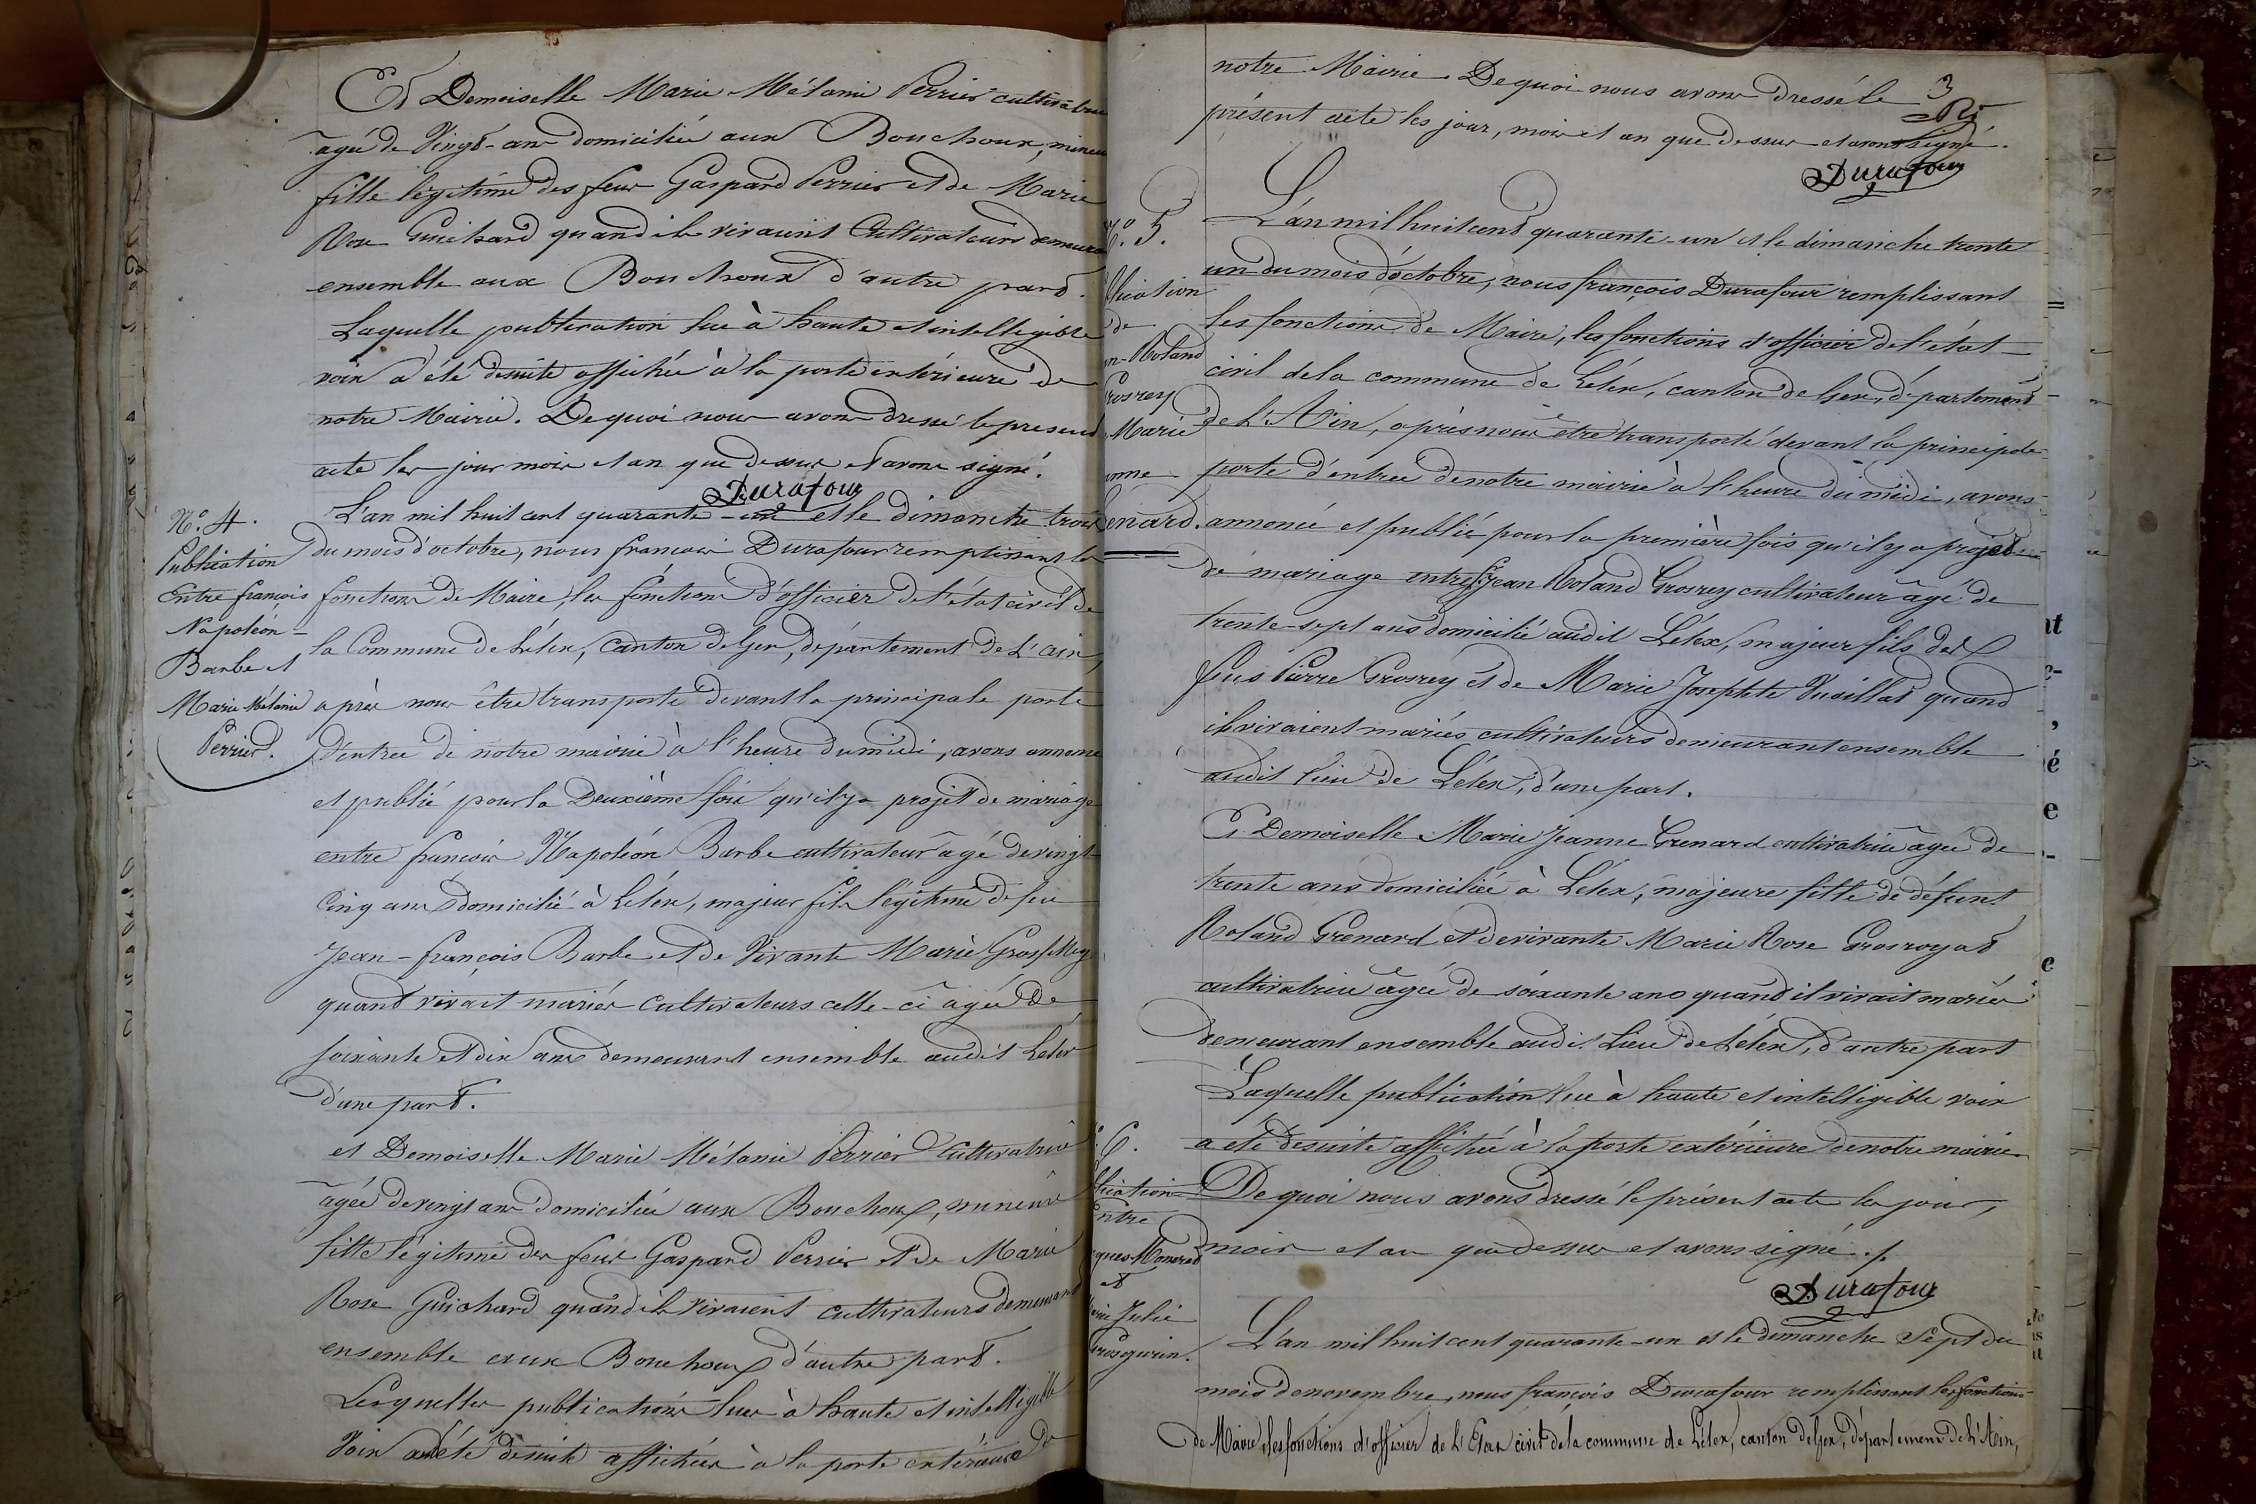 Et Demoiselle Marie Mélanie Perrier cultivatrice
âgée de Vingt ans domiciliée aux Bouchoux, mineure
fille légitime des feux Gaspard Perrier et de Marie
Rose Guichard quand ils vivaient Cultivateurs demeurant
ensemble aux Bouchoux d'autre part.
Laquelle publication lue à haute et intelligible
voix a été desuite affichée à la porte extérieure de
notre Mairie. De quoi nous avons dressé le présent
acte les jour mois et an que dessus et avons signé.
Durafour
N.° 4.
Publication
Entre françois
Napoléon
Barbe et
Marie Mélanie
Perrier.
L'an mil huit cent quarante-un et le dimanche trois
du mois d'octobre, nous françois Durafour remplissant les
fonctions de Maire, les fonctions d'officier de l'état civil de
la Commune de Lélex, Canton de Gex, département de L'ain,
après nous être transporté devant la principale porte
d'entrée de notre mairie à l'heure du midi, avons annoncé
et publié pour la Deuxième fois qu'il y a projet de mariage
entre françois Napoléon Barbe cultivateur âgé de vingt
Cinq ans domicilié à Lélex, majeur fils légitime de feu
Jean-françois Barbe et de Vivante Marie
quand vivait mariés Cultivateurs celle-ci âgée de
soixante et dix ans demeurant ensemble audit Lélex
d'une part.
et Demoiselle Marie Mélanie Perrier Cultivatrice
âgée de vingt ans domiciliée aux Bouchoux, mineure
fille légitime des feux Gaspard Perrier et de Marie
Rose Guichard quand ils vivaient cultivateurs demeurant
ensemble aux Bouchoux d'autre part.
Lesquelles publications lues à haute et intelligible
Voix a été desuite affichées à la porte extérieure de
notre Mairie. De quoi nous avons dressé le 3
présent acte les jour, mois et an que dessus et avons signé.
Durafour
N.° 5.
blication
de
an-Roland
Grosrey
Marie
anne
enard.
L'an mil huit cent quarante-un et le dimanche trente
un du mois d'octobre, nous françois Durafour remplissant
les fonctions de Maire, les fonctions d'officier de l'état
civil de la commune de Lélex, canton de Gex, département
de L'Ain, après nous être transporté devant la principale
porte d'entrée de notre mairie à l'heure du midi, avons
annoncé et publié pour la première fois qu'il y a projet
de mariage entre Jean Roland Grosrey cultivateur âgé de
trente-sept ans domicilié audit Lélex, majeur fils de
feus Pierre Grosrey et de Marie Josephte Vuaillat quand
ils vivaient mariés cultivateurs demeurant ensemble
audit lieu de Lélex, d'une part.
Et Demoiselle Marie Jeanne Grenard cultivatrice âgée de
trente ans domiciliée à Lélex, majeure fille de défunt
Roland Grenard et de vivante Marie Rose
cultivatrice âgée de soixante ans quand il vivait mariés
demeurant ensemble audit Lieu de Lélex, d'autre part
Laquelle publication lue à haute et intelligible voix
a été desuite affichée à la porte extérieure de notre mairie.
De quoi nous avons dressé le présent acte les jour,
mois et an que dessus et avons signé.
Durafour
6.
blication
Entre
ques
et
Julie
Grosgurin.
L'an mil huit cent quarante-un et le dimanche Sept du
mois de novembre, nous françois Durafour remplissant les fonctions
de Maire, les fonctions d'officier de L'Etat civil de la commune de Lélex, canton de Gex, département de L'Ain,